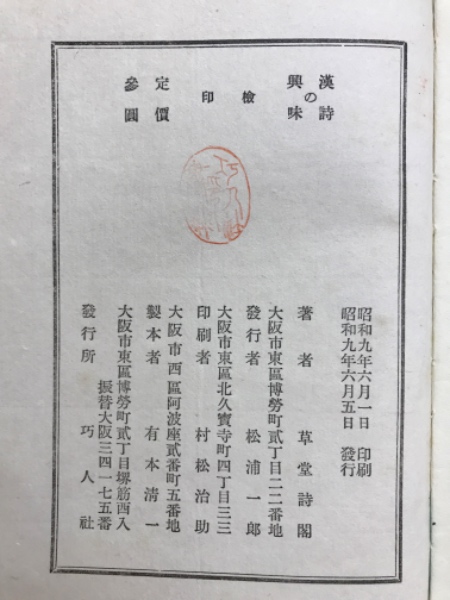 漢詩の興味
檢印
定價參圓
昭和九年六月一日 印刷
昭和九年六月五日 發行
著者 草堂詩閣
大阪市東區博勞町貳丁目二二番地
發行者 松浦一郎
大阪市東區北久寶寺町四丁目三三
印刷者 村松治助
大阪市西區阿波座貳番町五番地
製本者 有本淸一
大阪市東區博勞町貳丁目堺筋西入
振替大阪三四一七五番
發行所 巧人社